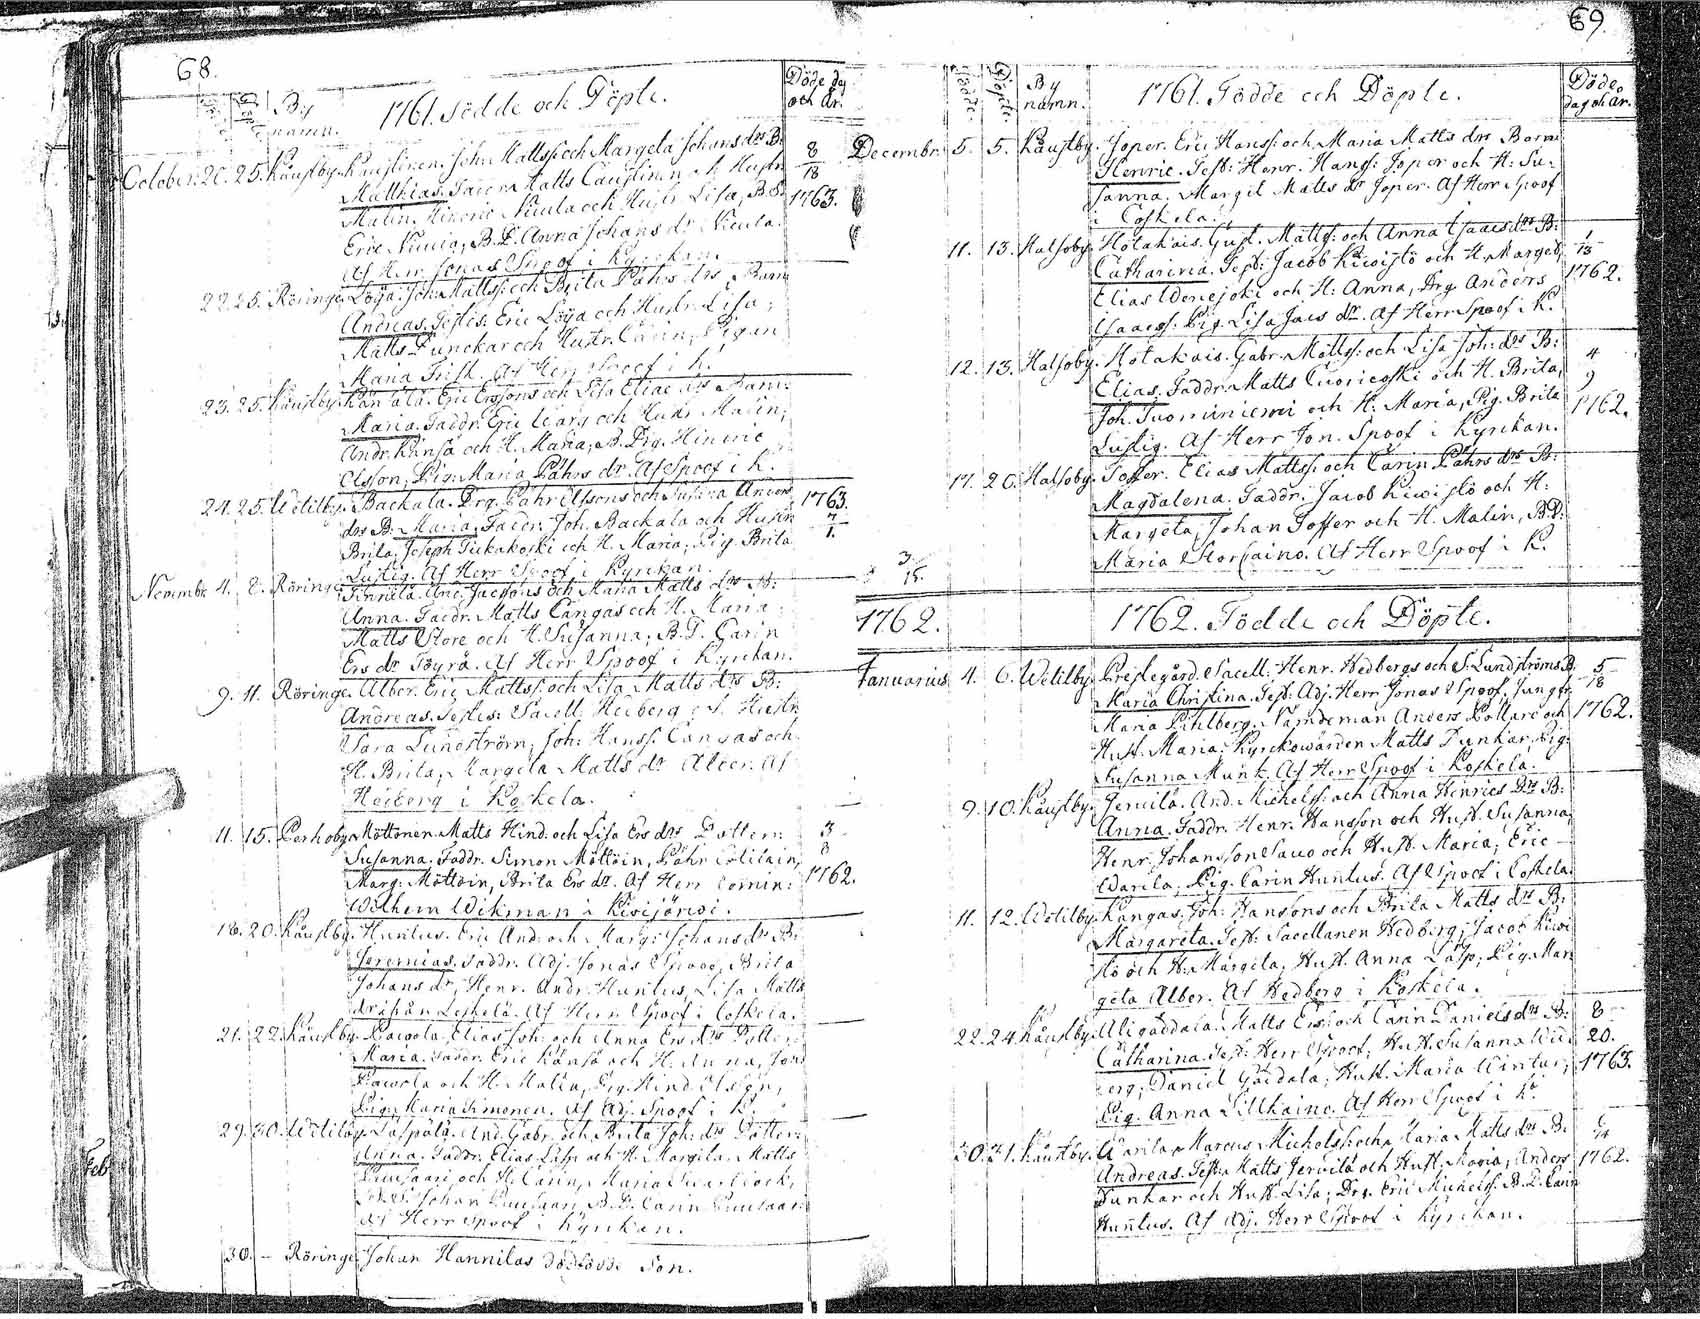 68.
Födde
Döpte
By namn.
1761. Födde och Döpte.
Döde dag och År.
October. 20. 25. Kaustby. Kaustinen. Joh: Mattss: och Margeta Johans drs B:
Matthias. Matts Caustinen och Hustr
Malin, Hinric Niuula och Hustr Lisa, B.S.
Eric Niuula, B.D. Anna Johans dr Niuula.
Af Herr Jonas Spoof i Kyrckan.
8
18
1763.
22. 25. Röringe. Löija. Joh: Mattss: och Brita Påhrs drs Barn
Andreas. Testes: Eric Löija och Hustr. Lisa,
Matts Dunckar och Hustr. Carin, Pigan
Maria Frisk. Af Herr Spoof i K.
23. 25. Kaustby. Eric Erssons och Lisa Eliae drs Barn:
Maria. Faddr. Eric Warg och Hustr Malin,
Andr. Känsä och H. Maria, Hinric
Olsson, Pig. Maria Påhrs dr. Af Spoof i K.
24. 25. Wetilby. Backala. Drg. Påhr Olssons och Susana Anders
drs B. Maria. Faddr. Joh. Backala och Hustr
Brita, Joseph och H. Maria, Pig. Brita
Lustig. Af Herr Spoof i Kyrckan.
1763.
7
1.
Novembr. 4. 8. Röringe. And. Jacsons och Maria Matts drs B:
Anna. Faddr. Matts Cangas och H. Maria
Matts Store och H. Susanna, B.D. Carin
Ers dr Töyrä. Af Herr Spoof i Kyrckan.
3.
15.
9. 11. Röringe. Alber. Eric Mattss: och Lisa Matts drs B:
Andreas. Testes: Sacell. Hedberg Hustr
Sara Lundström, Joh: Hanss: Cangas och
H. Brita, Margeta Matts dr Alber. Af
Hedberg i Koskela.
11. 15. Perhoby. Möttönen. Matts Hind: och Lisa Ers drs Dotter:
Susanna. Faddr. Simon Möttöin, Påhr
Marg: Möttöin, Brita Ers dr. Af Herr
Wilhem Wikman i Kivijärvi.
3
8
1762.
18. 20. Kaustby. Huntus. Eric And: och Marg: Johans drs B:
Jeremias. Faddr. Adj. Jonas Spoof, Brita
Johans dr, Henr. Andr. Huntus, Lisa Matts
dr ifrån Leskelä. Af Herr Spoof i Coskela.
21. 22. Kaustby. Pawola. Elias Joh: och Anna Ers drs Dotter
Maria. Faddr. Eric Känsä och H. Anna, Joh:
Pawola och H. Malin, Drg. Hind
Pig. Maria Simonen. Af Adj. Spoof i K.
29. 30. Wetilby. And. Gabr. och Brita Joh: drs Dotter:
Anna. Faddr. Elias Läsp och H. Margeta, Matts
och H. Carin, Maria
Johan B.D. Carin
Af Herr Spoof i Kyrckan.
30. - Röringe Johan Hannilas dödfödde Son.
Feb
69.
Födde
Döpte
By namn.
1761. Födde och Döpte.
Döde dag och År.
Decembr. 5. 5. Kaustby. Joper. Eric Hanss: och Maria Matts drs Barn
Henric. Test: Henr. Hanss: Joper och H: Su-
sanna. Margit Matts dr Joper. Af Herr Spoof
i Coskela.
11. 13. Halsoby. Hotakais. Gust. Mattss: och Anna Isaacs drs B:
Catharina. Test: Jacob Kiwistö och H. Marget,
Elias Wenejoki och H: Anna, Drg Anders
Isaacss: Pig. Lisa Jacs dr. Af Herr Spoof i K.
1
13
1762.
12. 13. Halsoby. Hotakais. Gabr. Mattss: och Lisa Joh: drs B:
Elias. Faddr. Matts Cuoricoski och H. Brita,
Joh. Tuominiemi och H: Maria, Pig. Brita
Lustig. Af Herr Jon. Spoof i Kyrckan.
4
9
1762.
17. 20. Halsoby. Toffer. Elias Mattss: och Carin Påhrs drs B:
Magdalena. Faddr. Jacob Kiwistö och H:
Margeta, Johan Toffer och H. Malin, B.D:
Maria Storcaino. Af Herr Spoof i K.
1762.
1762. Födde och Döpte.
Januarius 4. 6. Wetilby. Prestegård. Sacell: Henr. Hedbergs och S. Lundströms B.
Maria Christina. Test: Adj. Herr Jonas Spoof, Jungfr
Maria Pihlberg. Nämdeman Anders och
Hust. Maria, Kyrckowärden Matts Dunkar, Pig:
Susanna Munk. Af Herr Spoof i Koskela.
5
18
1762.
9. 10. Kaustby. Jerwilä. And. Michelss: och Anna Henrics Drs B:
Anna. Faddr. Henr. Hansson och Hust. Susanna,
Henr. Johansson Sawo och Hust. Maria, Eric
Warila, Pig. Carin Huntus. Af Spoof i Coskela.
11. 12. Wetilby. Kangas. Joh: Hansons och Brita Matts drs B:
Margareta. Test: Sacellanen Hedberg, Jacob Kiwi
stö och H: Margeta, Hust. Anna Läsp, Pig. Mar
geta Alber. Af Hedberg i Koskela.
22. 24. Kaustby. Aligåddala. Matts Ers: och Carin Daniels drs B:
Catharina. Test: Herr Spoof, Hust. Susanna
Daniel Gåddala, Hust. Maria Wintur,
Pig. Anna Lillkaino. Af Herr Spoof i K.
8
20.
1763.
30. 31. Kaustby. Marcus Michelss: och Maria Matts drs B:
Andreas. Test: Matts Jerwilä och Hust. Maria, Anders
Dunkar och Hust. Lisa, Drg. Eric Michelss: B.D. Carin
Huntus. Af Adj. Herr Spoof i Kyrckan.
1762.